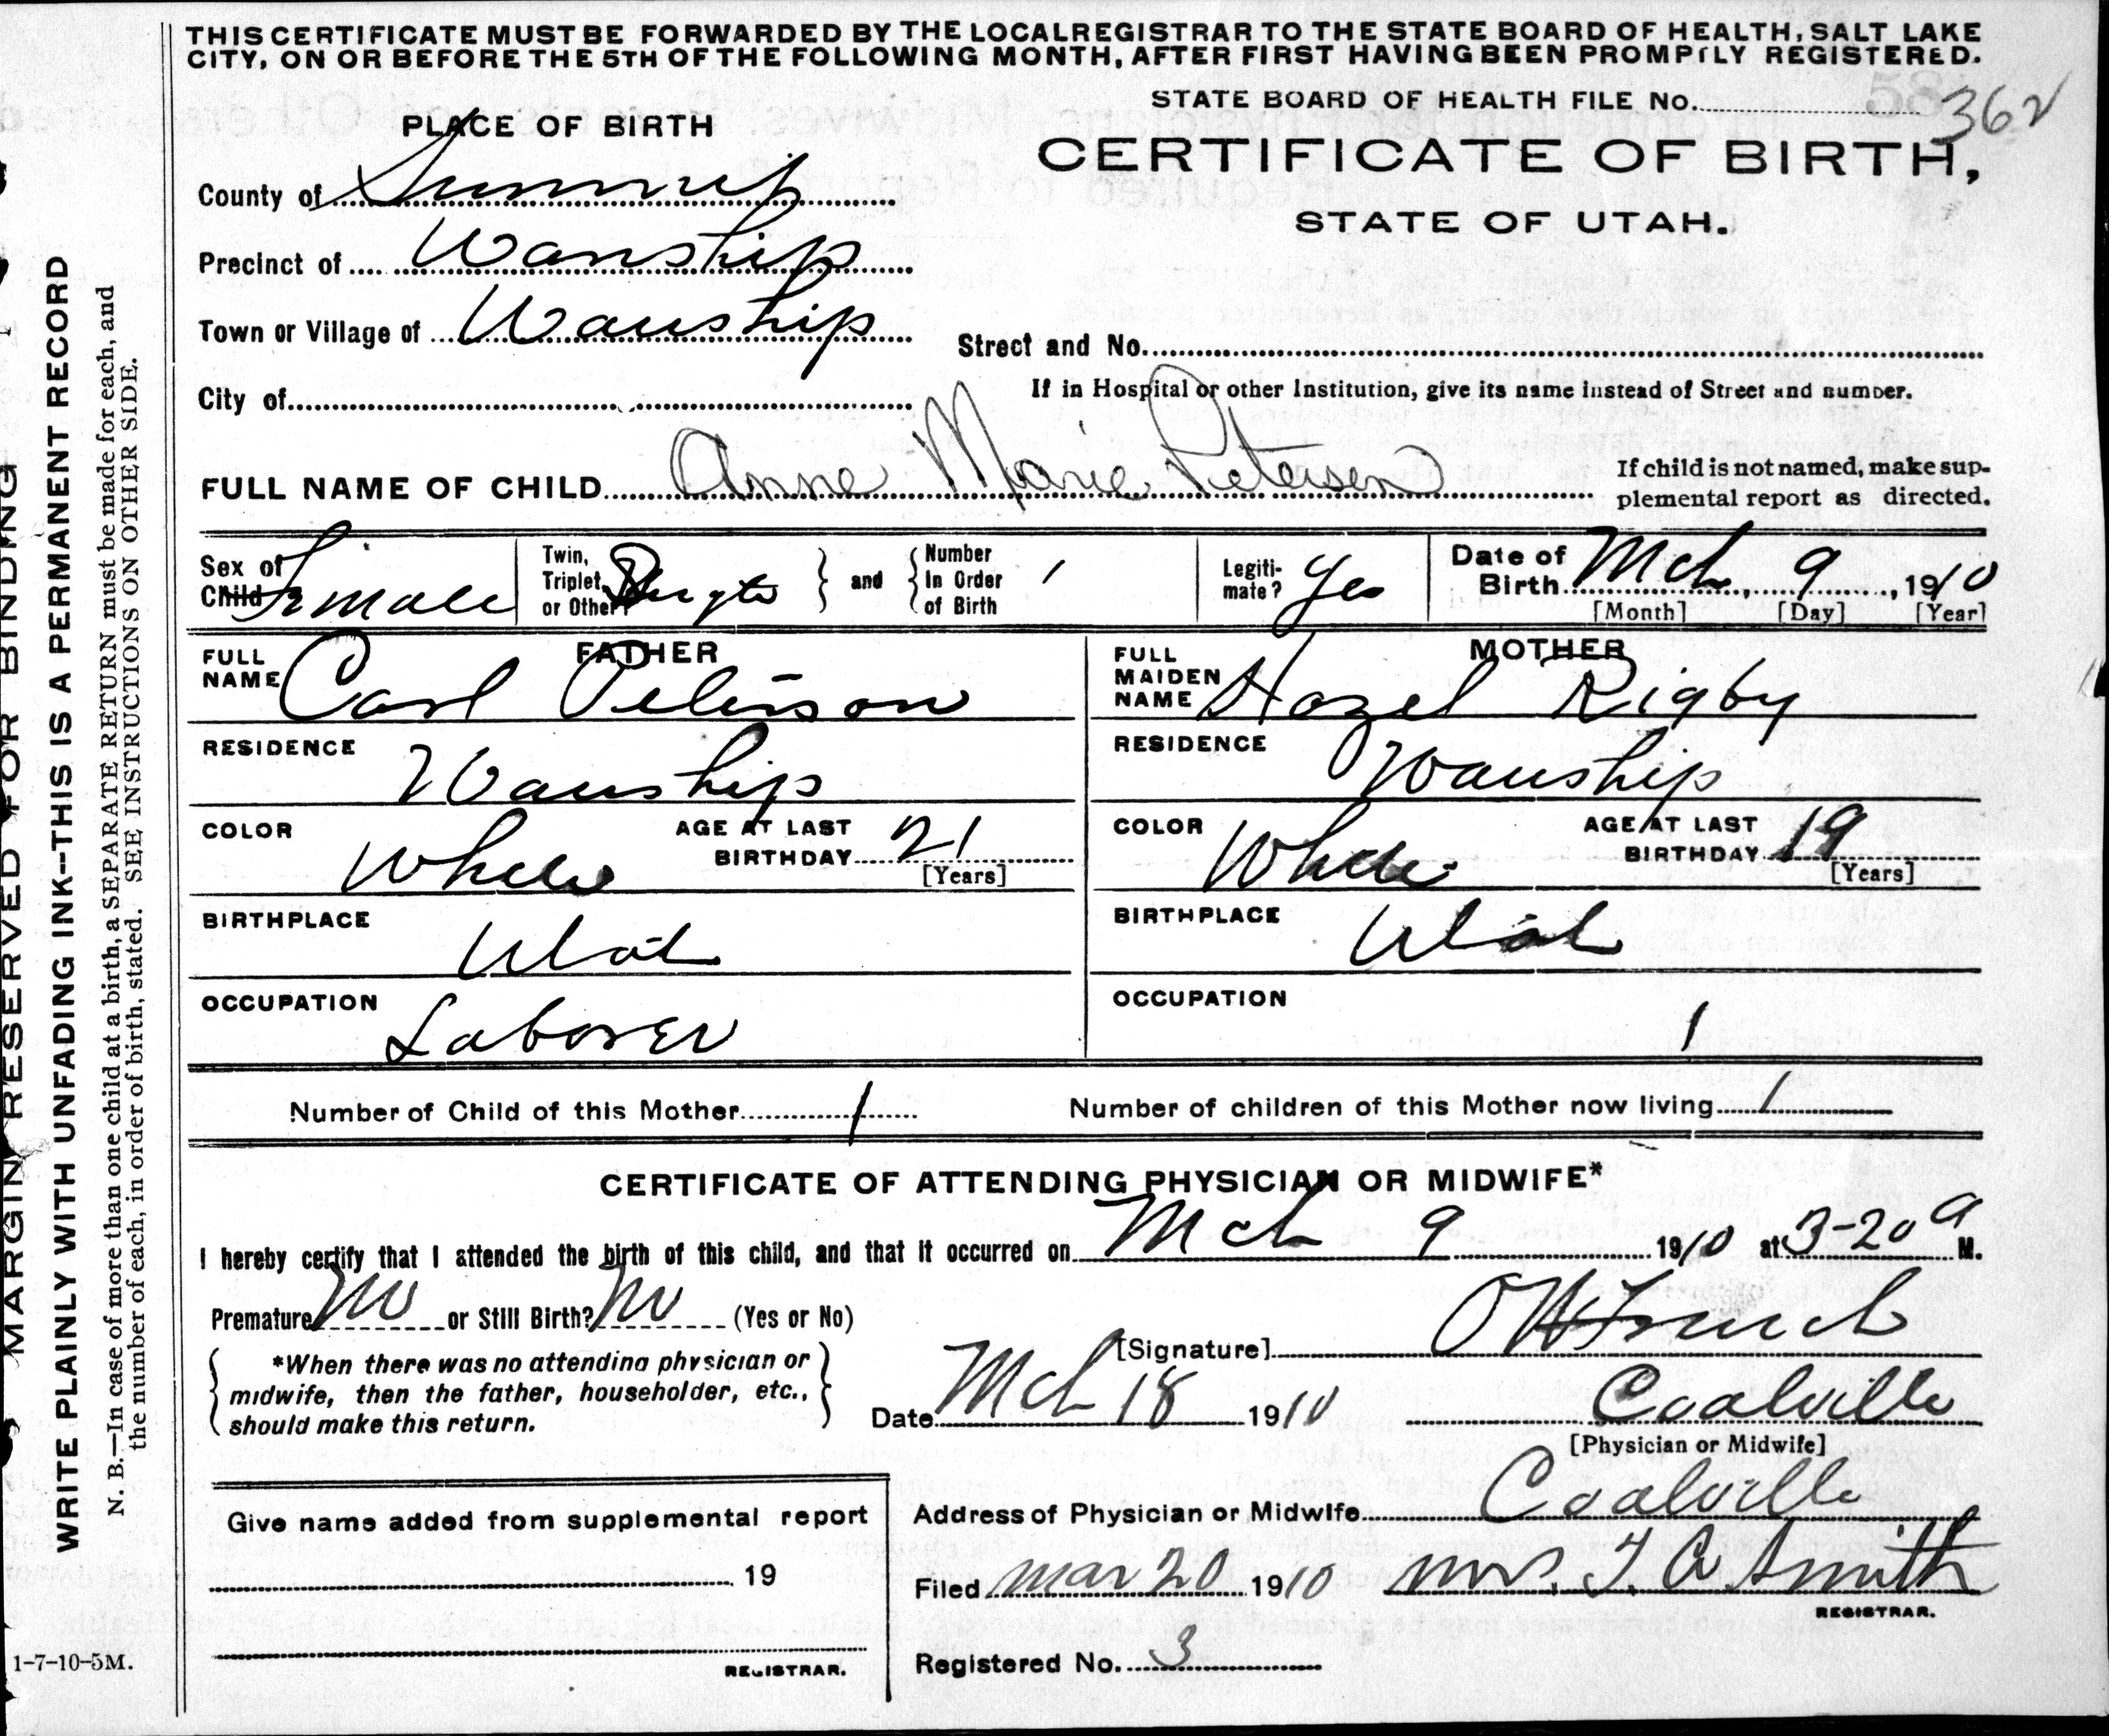 THIS CERTIFICATE MUST BE FORWARDED BY THE LOCAL REGISTRAR TO THE STATE BOARD OF HEALTH, SALT LAKE
CITY, ON OR BEFORE THE 5TH OF THE FOLLOWING MONTH, AFTER FIRST HAVING BEEN PROMPTLY REGISTERED.
STATE BOARD OF HEALTH FILE No. 58 362
PLACE OF BIRTH
CERTIFICATE OF BIRTH,
STATE OF UTAH.
County of Summit
Precinct of Wanship
Town or Village of Wanship
Street and No.
City of
If in Hospital or other Institution, give its name instead of Street and number.
FULL NAME OF CHILD Anne Marie Petersen
If child is not named, make sup-
plemental report as directed.
Sex of Child Female
Twin, Triplet, or Other
and
Number In Order of Birth 1
Legiti-mate? Yes
Date of Birth Mch 9, 1910
[Month] [Day] [Year]
FATHER
FULL NAME Carl Peterson
RESIDENCE Wanship
COLOR White
AGE AT LAST BIRTHDAY 21
[Years]
BIRTHPLACE Utah
OCCUPATION Laborer
MOTHER
FULL MAIDEN NAME Hazel Rigby
RESIDENCE Wanship
COLOR White
AGE AT LAST BIRTHDAY 19
[Years]
BIRTHPLACE Utah
OCCUPATION 1
Number of Child of this Mother 1
Number of children of this Mother now living 1
CERTIFICATE OF ATTENDING PHYSICIAN OR MIDWIFE*
I hereby certify that I attended the birth of this child, and that it occurred on Mch 9 1910 at 3-20 a M.
Premature No or Still Birth? No (Yes or No)
*When there was no attending physician or
midwife, then the father, householder, etc.,
should make this return.
[Signature] O W French
Date Mch 18 1910 Coalville
[Physician or Midwife]
Give name added from supplemental report
19
REGISTRAR.
Address of Physician or Midwife Coalville
Filed Mar 20 1910 Mrs. T. A Smith
REGISTRAR.
Registered No. 3
MARGIN RESERVED FOR BINDING
WRITE PLAINLY WITH UNFADING INK--THIS IS A PERMANENT RECORD
N. B.—In case of more than one child at a birth, a SEPARATE RETURN must be made for each, and
the number of each, in order of birth, stated. SEE INSTRUCTIONS ON OTHER SIDE.
1-7-10-5M.